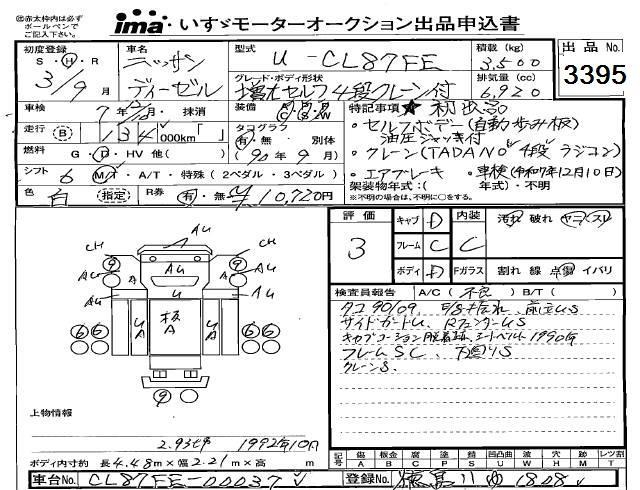 ㊟赤太枠内は必ず
ボールペンで
ご記入下さい。
ima いすゞモーターオークション出品申込書
初度登録
S・H・R
3/9月
車名
ニッサン
ディーゼル
型式
U-CL87FE
グレード・ボディ形状
増大セルフ4段クレーン付
積載(kg)
3,500
排気量(cc)
6,920
出品No.
3395
車検 7年12/10月・抹消
装備 A/C P/S P/W
特記事項 ★
走行 B 134,000km「 」
タコグラフ
有・無 別体
(90年9月)
・セルフボデー(自動歩み板)
油圧ジャッキ付
燃料 G・D・HV 他( )
・クレーン(TADANO 4段 ラジコン)
シフト 6 M/T・A/T・特殊(2ペダル・3ペダル)
・エアブレーキ ・車検(令和7年12月10日)
架装物年式:( 年式)・不明
色 白 指定 R券 有・無 ¥10,720円
※不明の場合は、不明に○をする。
評価 3
キャブ D 内装 C
フレーム C
ボディ D Fガラス
汚れ 破れ ヤニ スリ
割れ 線 点傷 イバリ
CH AU CH
9 9
AU A AU A AU
AU U AU
6 6 UA 板A UA 6 6
9
検査員報告 A/C(不良) B/T( )
タコ90/09
サイドガードU、RフェンダーUS
1990年
フレームSC、下回りS
クレーンS.
上物情報
1992年10月
ボディ内寸約 長4.48m×幅2.21m×高 m
記号 傷A 板金B 腐C 塗P 錆S 凹凸曲U 割W 穴H 跡M レツ割T
車台No. CL87FE-00037
登録No.